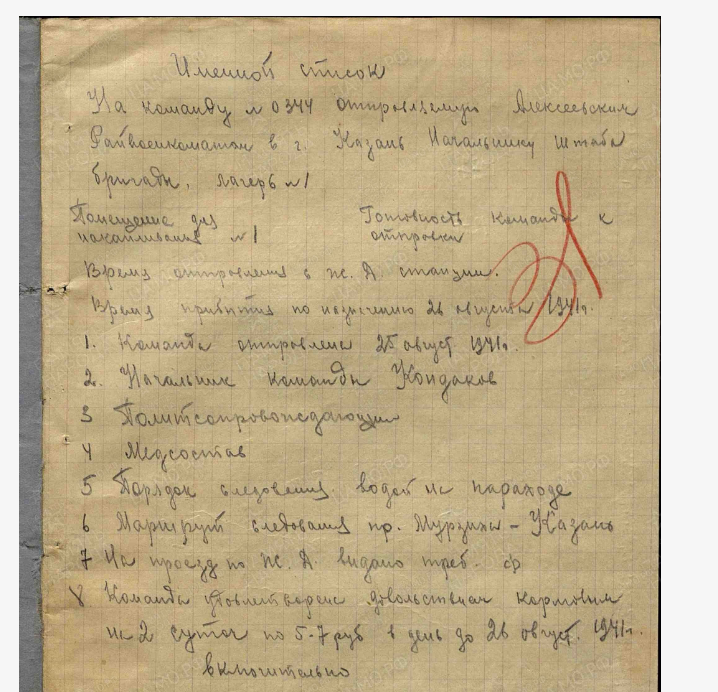 Именной список
На команду №0344 отправляемую Алексеевским
Райвоенкоматом в г. Казань Начальнику штаба
бригады, лагерь №1
Помещение для
накапливания №1
Готовность команды к
отправки
Время отправления с ж. д станции.
Время прибытия по назначению 26 августа 1941г.
1. Команда отправлена 25 август 1941г.
2. Начальник команды Кондаков
3 Политсопровождающий
4 Медсостав
5 Порядок следования водой на параходе
6 Маршрут следования пр. Мурзиха - Казань
7 На проезд по ж. д. видано треб.
8 Команда удовлетворена довольствием кормовым
на 2 суток по 5-7 руб в день до 26 август. 1941г.
включительно